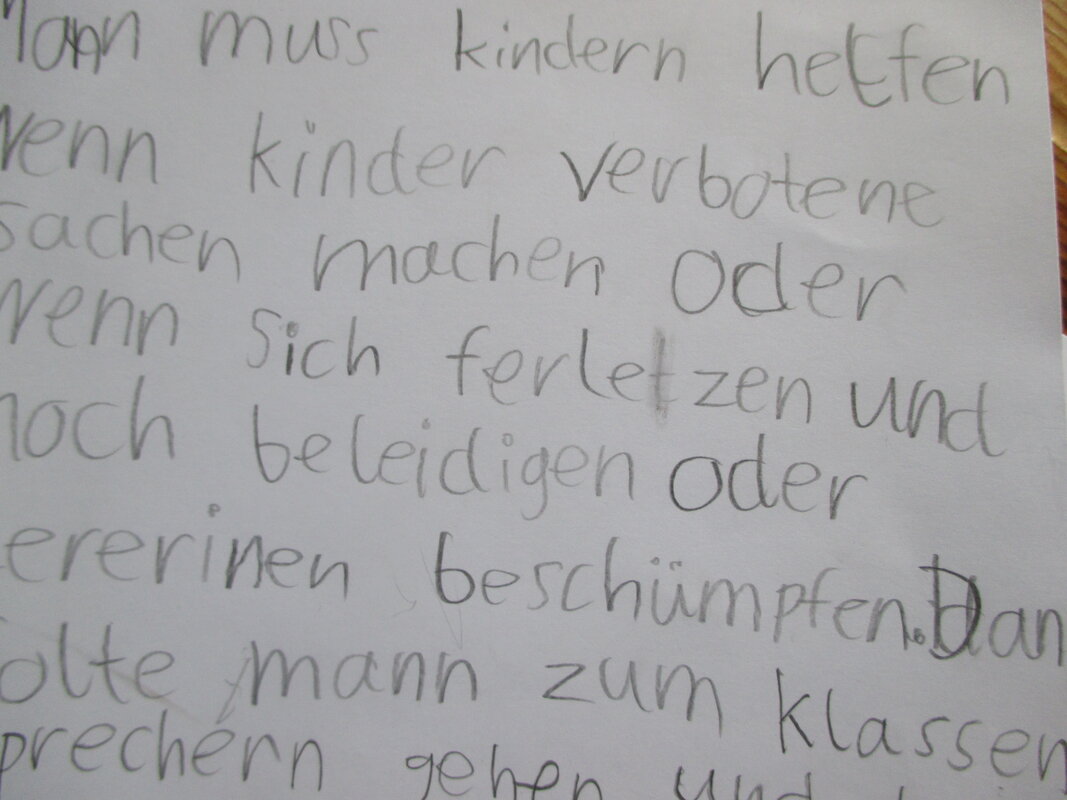 Mann muss kindern helfen
Wenn kinder verbotene
sachen machen oder
Wenn sich ferletzen und
noch beleidigen oder
ererinen beschümpfen. Dan
olte mann zum klassen
prechern gehen und